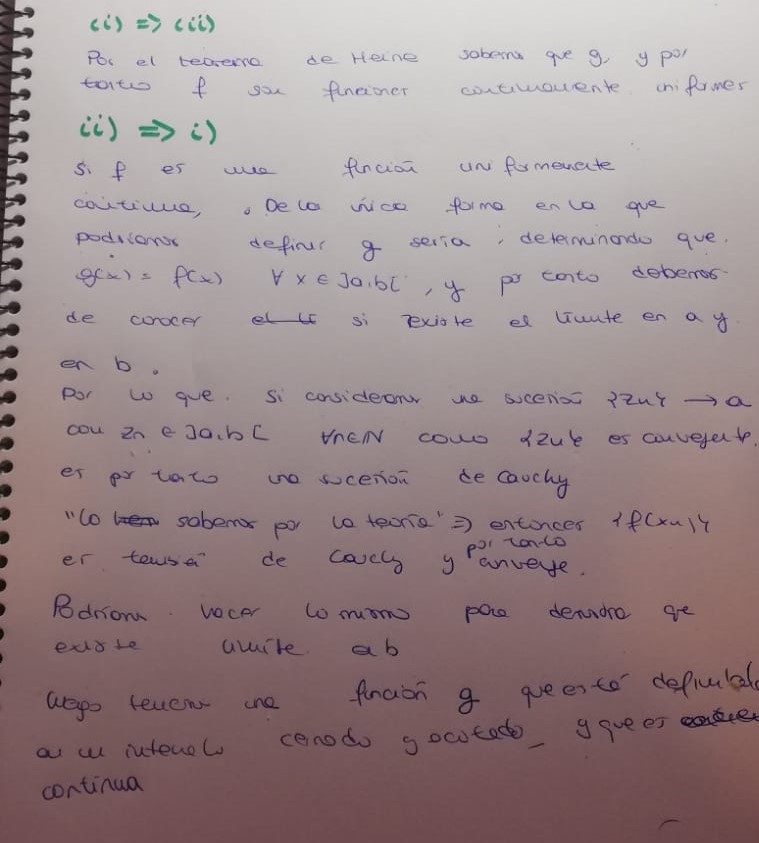 (i) => (ii)
Por el teorema de Heine sabemos que g, y por
tanto f son funciones continuamente uniformes
ii) => i)
Si f es una función uniformemente
continua, . De la única forma en la que
podríamos definir g sería, determinando que.
g(x) = f(x) ∀ x ∈ ]a,b[ , y por tanto debemos
de conocer si existe el límite en a y
en b.
Por lo que. si consideramos una sucesión {zn} → a
con zn ∈ ]a,b[ ∀n∈N como {zn} es convergente,
es por tanto una sucesión de Cauchy
"Lo sabemos por la teoría" => entonces {f(xn)}
es también de Cauchy y por tanto
converge.
Podríamos hacer lo mismo para demostrar que
existe límite a b
Luego tenemos una función g que está definida
en un intervalo cerrado y acotado, y que es
continua